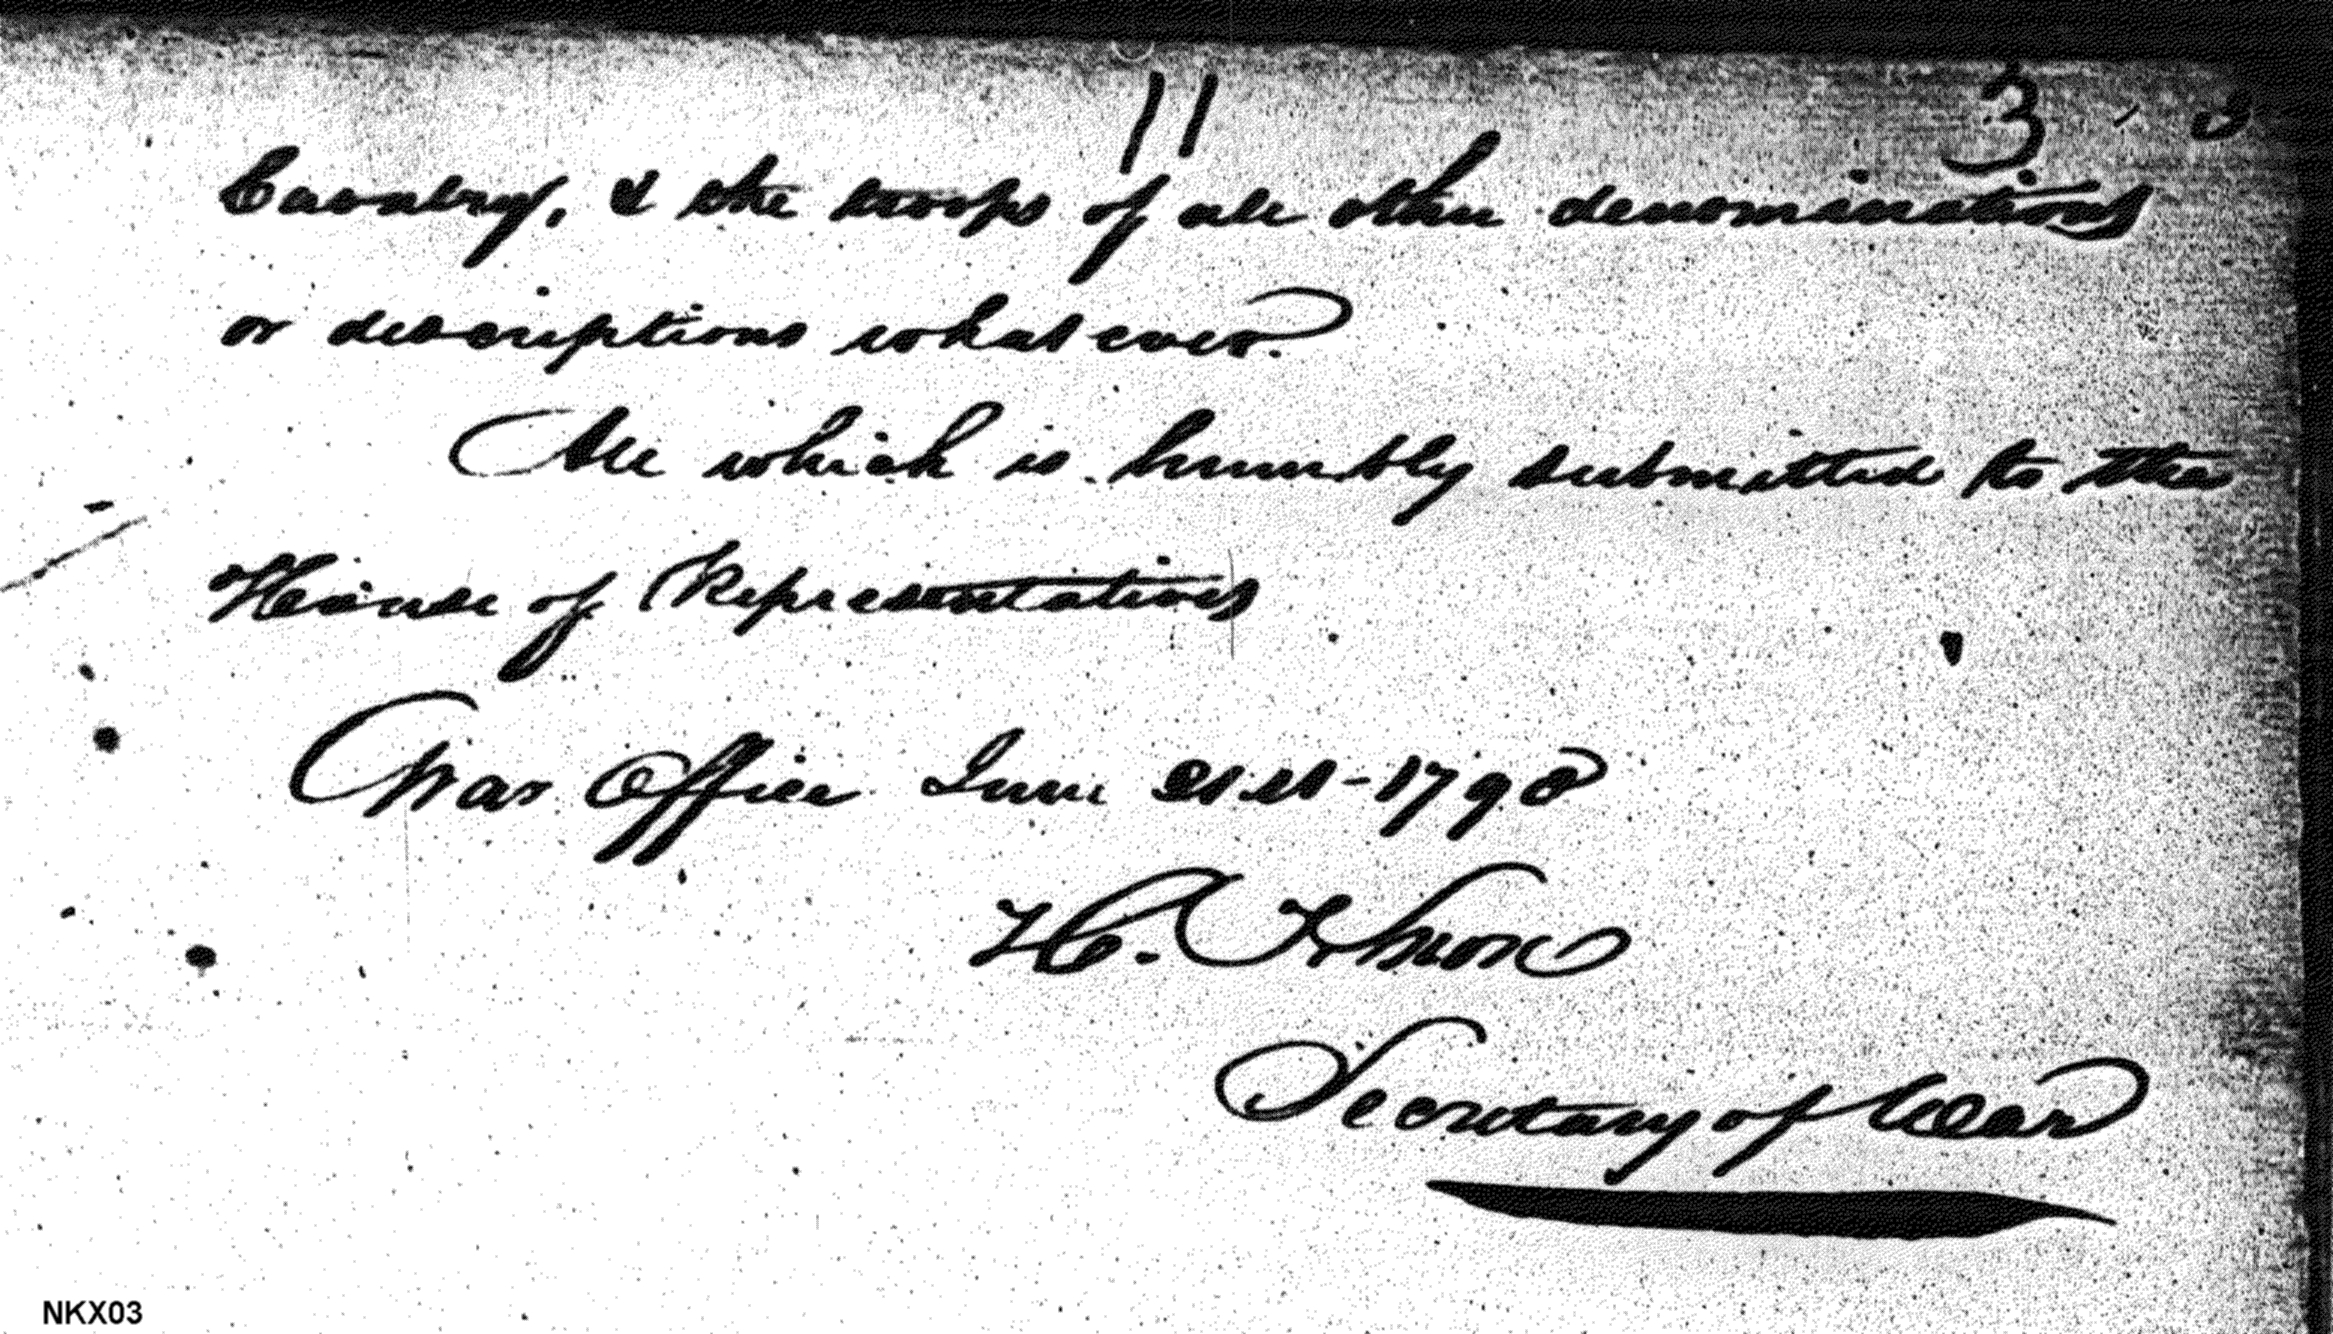 11 3
Cavalry, & the troops of all other denominations
or descriptions whatsoever.
All which is humbly submitted to the
House of Representatives
War Office June 21st - 1790
H. Knox
Secretary of War
NKX03